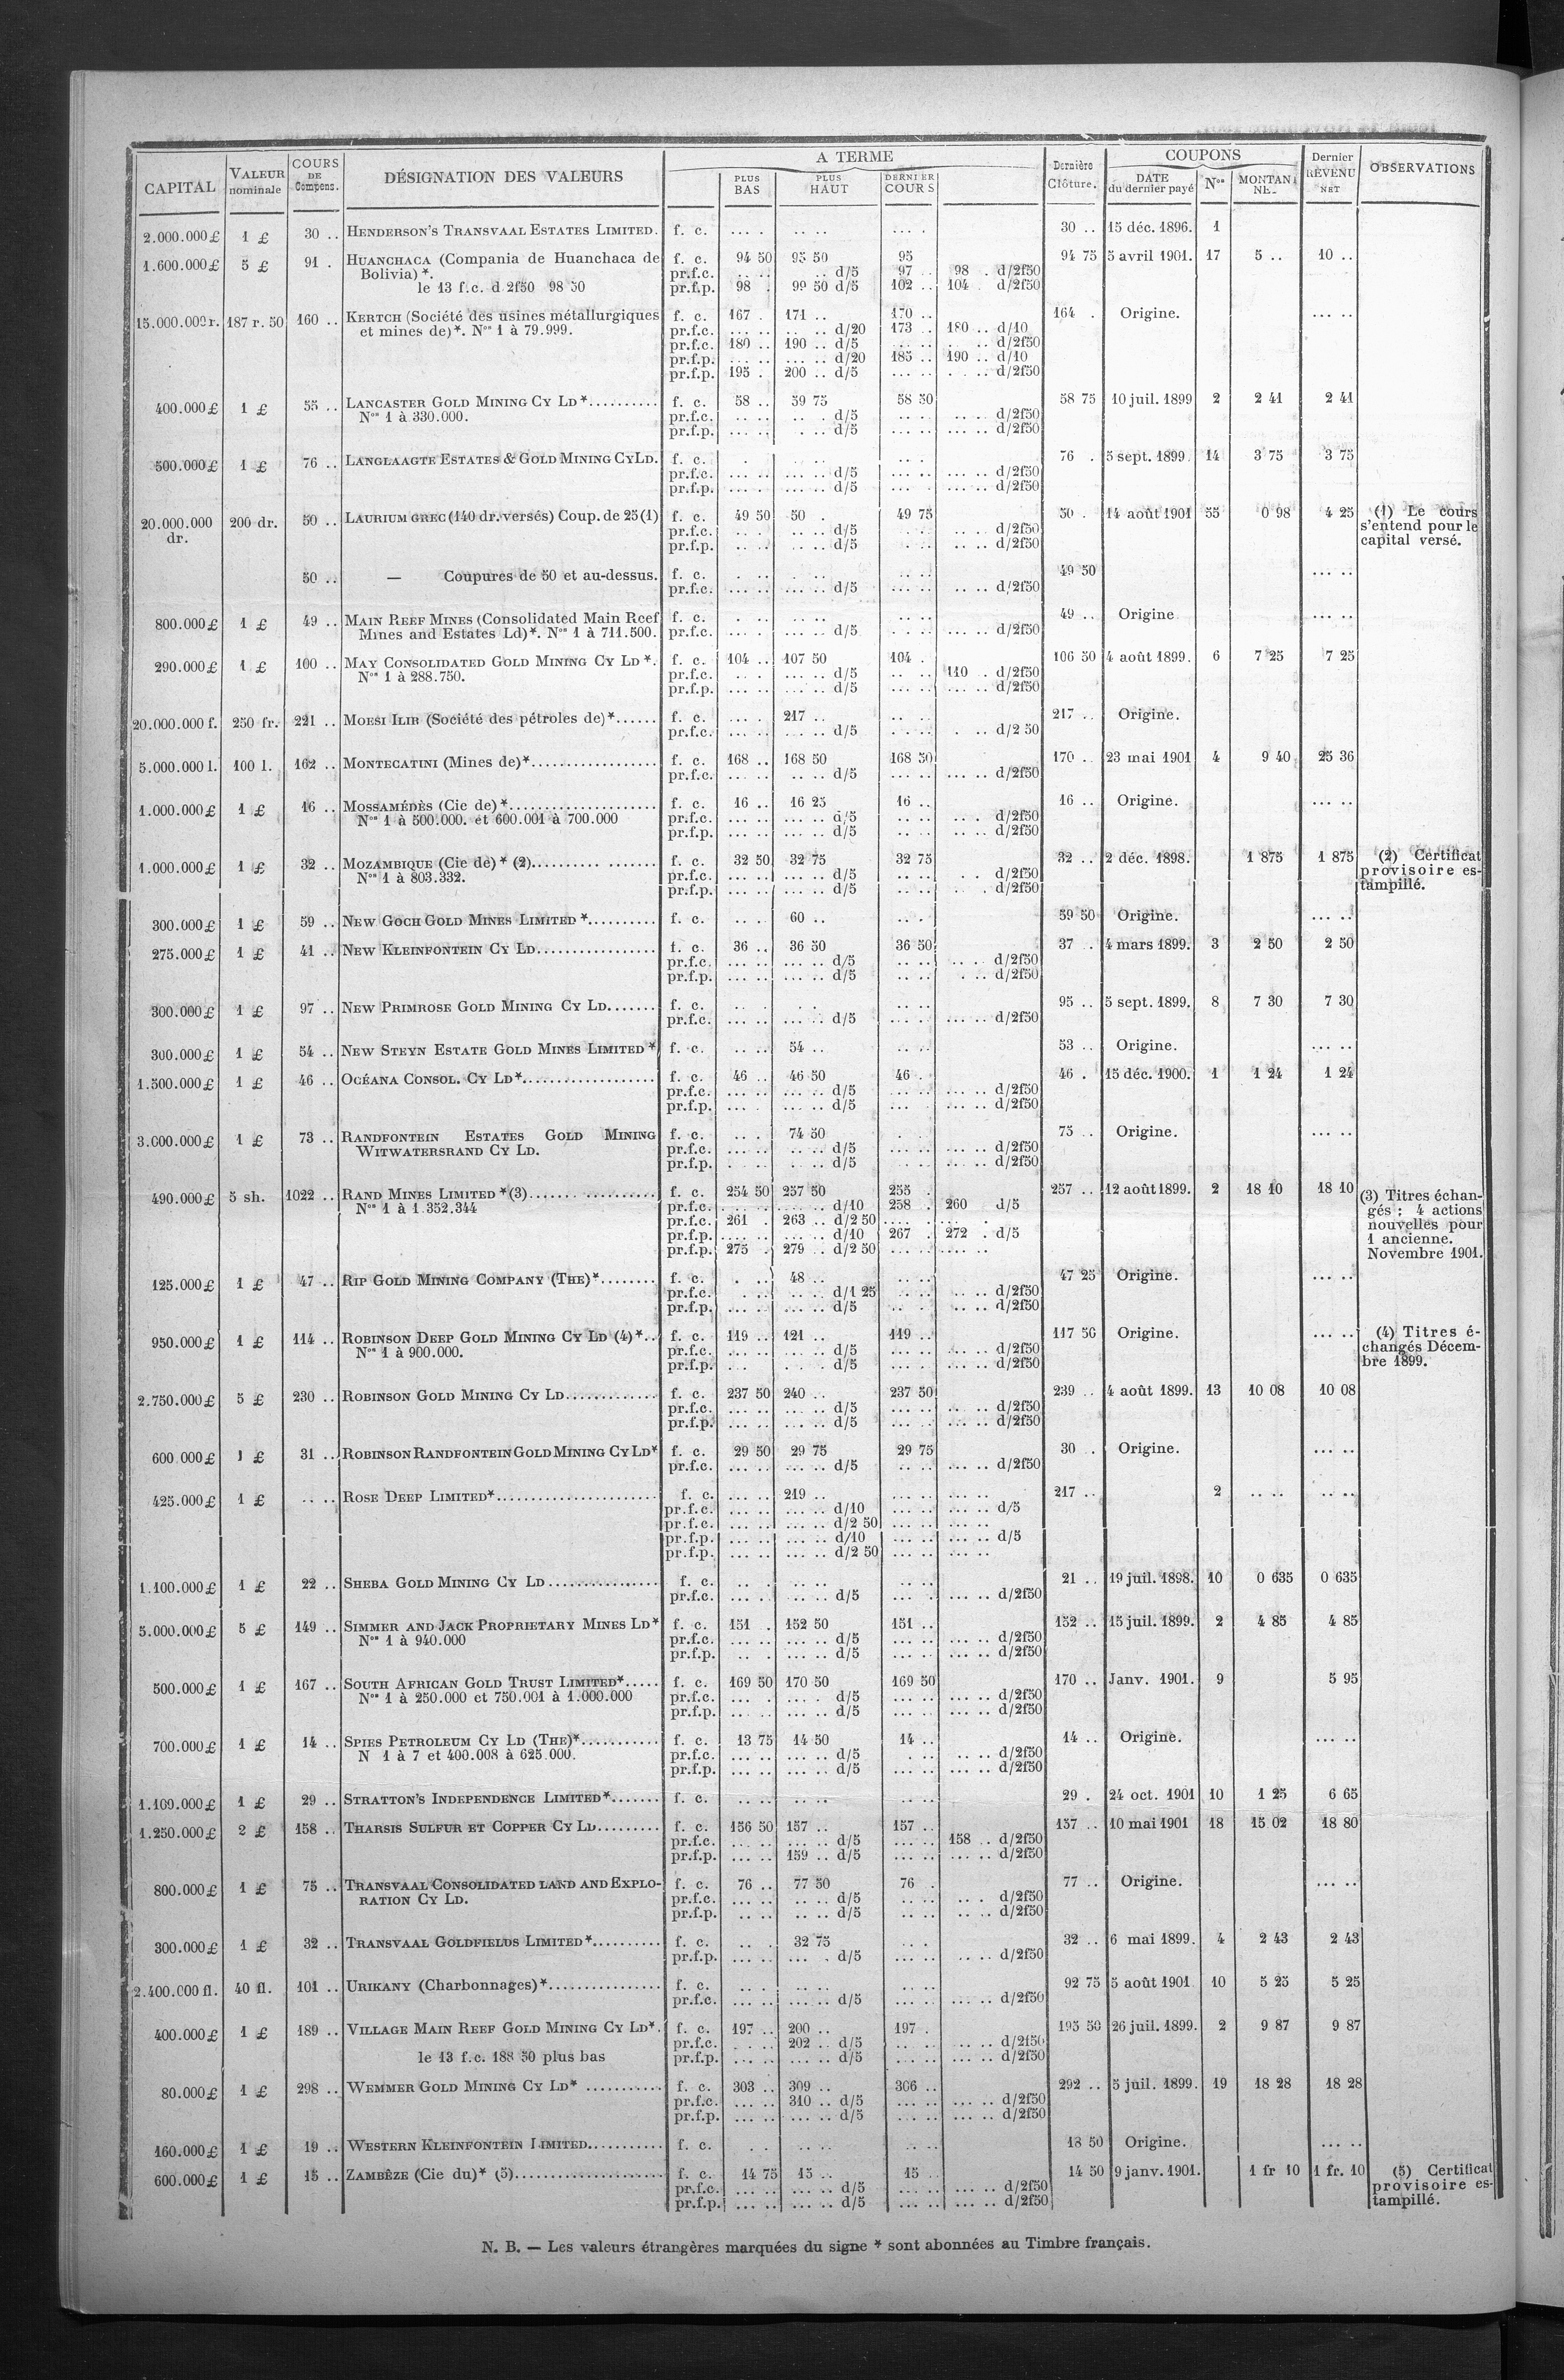 CAPITAL VALEUR nominale COURS DE Compens. DÉSIGNATION DES VALEURS A TERME PLUS BAS PLUS HAUT DERNIER COURS Dernière Clôture. COUPONS DATE du dernier payé Nos MONTANT NET Dernier REVENU NET OBSERVATIONS
2.000.000£ 1 £ 30 .. HENDERSON'S TRANSVAAL ESTATES LIMITED. f. c. .... . .. .. ... . 30 .. 15 déc. 1896. 1
1.600.000£ 5 £ 91 . HUANCHACA (Compania de Huanchaca de f. c. 94 50 95 50 95 94 75 5 avril 1901. 17 5 .. 10 ..
Bolivia)*. pr.f.c. .. .. .. d/5 97 .. 98 . d/2f50
le 13 f.c. d 2f50 98 50 pr.f.p. 98 . 99 50 d/5 102 .. 104 . d/2f50
15.000.000r. 187 r. 50 160 .. KERTCH (Société des usines métallurgiques f. c. 167 . 171 .. 170 .. 164 . Origine. ... ..
et mines de)*. Nos 1 à 79.999. pr.f.c. ... .. .. .. d/20 173 .. 180 .. d/10
pr.f.c. 180 .. 190 .. d/5 d/2f50
pr.f.p. ... .. ... .. d/20 185 .. 190 .. d/10
pr.f.p. 195 . 200 .. d/5 ... .. d/2f50
400.000£ 1 £ 55 .. LANCASTER GOLD MINING CY LD*.......... f. c. 58 .. 59 75 58 50 58 75 10 juil. 1899 2 2 41 2 41
Nos 1 à 330.000. pr.f.c. ... .. .. . d/5 .. .. ... .. d/2f50
pr.f.p. ... .. . .. d/5 .. .. ... .. d/2f50
500.000£ 1 £ 76 .. LANGLAAGTE ESTATES & GOLD MINING CY LD. f. c. 76 . 5 sept. 1899. 14 3 75 3 75
pr.f.c. ... .. ... .. d/5 ... .. ... .. d/2f50
pr.f.p. ... .. ... .. d/5 ... .. ... .. d/2f50
20.000.000 200 dr. 50 .. LAURIUM GREC (140 dr. versés) Coup. de 25 (1) f. c. 49 50 50 . 49 75 50 . 14 août 1901 55 0 98 4 25 (1) Le cours
dr. pr.f.c. .. . .. .. d/5 .. . .. .. d/2f50 s'entend pour le
pr.f.p. .. .. .. .. d/5 .. .. .. .. d/2f50 capital versé.
50 .. — Coupures de 50 et au-dessus. f. c. 49 50 ... ..
pr.f.c. ... .. ... .. d/5 .. .. .. .. d/2f50
800.000£ 1 £ 49 .. MAIN REEF MINES (Consolidated Main Reef f. c. 49 .. Origine ... ..
Mines and Estates Ld)*. Nos 1 à 711.500. pr.f.c. ... . ... .. d/5 ... .. d/2f50
290.000£ 1 £ 100 .. MAY CONSOLIDATED GOLD MINING CY LD *. f. c. 104 .. 107 50 104 . 106 50 4 août 1899. 6 7 25 7 25
Nos 1 à 288.750. pr.f.c. .. . ... .. d/5 .. .. 110 . d/2f50
pr.f.p. ... .. ... .. d/5 ... .. ... .. d/2f50
20.000.000 f. 250 fr. 221 .. MOESI ILIR (Société des pétroles de)*...... f. c. ... . 217 .. .. .. 217 .. Origine.
pr.f.c. ... .. ... .. d/5 .. . . .. d/2 50
5.000.000 l. 100 l. 162 .. MONTECATINI (Mines de)*................. f. c. 168 .. 168 50 168 50 170 .. 23 mai 1901 4 9 40 25 36
pr.f.c. ... .. .. .. d/5 ... .. ... .. d/2f50
1.000.000£ 1 £ 16 .. MOSSAMÉDÈS (Cie de)*..................... f. c. 16 .. 16 25 16 .. 16 .. Origine. ... ..
Nos 1 à 500.000. et 600.001 à 700.000 pr.f.c. ... .. ... .. d/5 .. .. .. . d/2f50
pr.f.p. ... .. ... .. d/5 .. .. .. .. d/2f50
1.000.000£ 1 £ 32 .. MOZAMBIQUE (Cie de)* (2).......... ....... f. c. 32 50 32 75 32 75 32 .. 2 déc. 1898. 1 875 1 875 (2) Certificat
Nos 1 à 803.332. pr.f.c. ... .. ... .. d/5 .. .. . . d/2f50 provisoire es-
pr.f.p. ... .. ... .. d/5 .. .. d/2f50 tampillé.
300.000£ 1 £ 59 .. NEW GOCH GOLD MINES LIMITED *.......... f. c. .. . 60 .. .. . 59 50 Origine. ... ..
275.000£ 1 £ 41 .. NEW KLEINFONTEIN CY LD................. f. c. 36 .. 36 50 36 50 37 . 4 mars 1899. 3 2 50 2 50
pr.f.c. ... .. ... .. d/5 .. .. ... .. d/2f50
pr.f.p. ... .. ... .. d/5 .. .. . .. d/2f50
300.000£ 1 £ 97 .. NEW PRIMROSE GOLD MINING CY LD....... f. c. .. . . . .. .. 95 .. 5 sept. 1899. 8 7 30 7 30
pr.f.c. ... .. ... .. d/5 ... .. ... .. d/2f50
300.000£ 1 £ 54 .. NEW STEYN ESTATE GOLD MINES LIMITED * f. c. .. .. 54 .. .. .. 53 .. Origine. ... ..
1.500.000£ 1 £ 46 .. OCÉANA CONSOL. CY LD*................... f. c. 46 .. 46 50 46 . 46 . 15 déc. 1900. 1 1 24 1 24
pr.f.c. ... .. ... .. d/5 ... .. ... .. d/2f50
pr.f.p. ... . ... .. d/5 ... . ... .. d/2f50
3.000.000£ 1 £ 73 .. RANDFONTEIN ESTATES GOLD MINING f. c. .. . 74 50 75 .. Origine. ... ..
WITWATERSRAND CY LD. pr.f.c. ... .. .. .. d/5 ... .. ... .. d/2f50
pr.f.p. . .. .. .. d/5 .. .. ... .. d/2f50
490.000£ 5 sh. 1022 .. RAND MINES LIMITED *(3)...... ........... f. c. 254 50 257 50 255 . 257 .. 12 août 1899. 2 18 10 18 10 (3) Titres échan-
Nos 1 à 1.352.344 pr.f.c. ... .. ... .. d/10 258 . 260 d/5 gés : 4 actions
pr.f.c. 261 . 263 .. d/2 50 .... . . nouvelles pour
pr.f.p. ... .. ... .. d/10 267 . 272 . d/5 1 ancienne.
pr.f.p. 275 . 279 .. d/2 50 ... .. ... .. Novembre 1901.
125.000£ 1 £ 47 .. RIP GOLD MINING COMPANY (THE)*........ f. c. . .. 48 .. .. .. 47 25 Origine. ... ..
pr.f.c. . .. .. .. d/1 25 .. .. .. .. d/2f50
pr.f.p. ... . ... .. d/5 .. . .. .. d/2f50
950.000£ 1 £ 114 .. ROBINSON DEEP GOLD MINING CY LD (4)*.. f. c. 119 .. 121 .. 119 .. 117 50 Origine. ... .. (4) Titres é-
Nos 1 à 900.000. pr.f.c. ... .. ... .. d/5 ... . ... .. d/2f50 changés Décem-
pr.f.p. ... . . d/5 ... . ... .. d/2f50 bre 1899.
2.750.000£ 5 £ 230 .. ROBINSON GOLD MINING CY LD............. f. c. 237 50 240 .. 237 50 239 .. 4 août 1899. 13 10 08 10 08
pr.f.c. ... .. ... .. d/5 ... .. .. .. d/2f50
pr.f.p. ... .. ... .. d/5 ... .. ... .. d/2f50
600.000£ 1 £ 31 .. ROBINSON RANDFONTEIN GOLD MINING CY LD* f. c. 29 50 29 75 29 75 30 . Origine. ... ..
pr.f.c. ... .. ... .. d/5 .. .. ... .. d/2f50
425.000£ 1 £ .. .. ROSE DEEP LIMITED*....................... f. c. ... .. 219 .. ... .. ... .. 217 .. 2 .. .. .. ..
pr.f.c. ... .. ... .. d/10 ... .. ... .. d/5
pr.f.c. ... .. ... .. d/2 50 ... .. ... ..
pr.f.p. ... .. ... .. d/10 ... .. ... .. d/5
pr.f.p. ... .. ... .. d/2 50 ... .. ... ..
1.100.000£ 1 £ 22 .. SHEBA GOLD MINING CY LD ................ f. c. .. . .. .. .. .. 21 .. 19 juil. 1898. 10 0 635 0 635
pr.f.c. ... .. ... .. d/5 .. . ... .. d/2f50
5.000.000£ 5 £ 149 .. SIMMER AND JACK PROPRIETARY MINES LD* f. c. 151 . 152 50 151 .. 152 .. 15 juil. 1899. 2 4 85 4 85
Nos 1 à 940.000 pr.f.c. ... .. ... .. d/5 ... .. ... .. d/2f50
pr.f.p. .. .. ... .. d/5 ... .. ... .. d/2f50
500.000£ 1 £ 167 .. SOUTH AFRICAN GOLD TRUST LIMITED*..... f. c. 169 50 170 50 169 50 170 .. Janv. 1901. 9 5 95
Nos 1 à 250.000 et 750.001 à 1.000.000 pr.f.c. ... . ... . d/5 ... .. ... .. d/2f50
pr.f.p. ... .. ... .. d/5 ... .. ... .. d/2f50
700.000£ 1 £ 14 .. SPIES PETROLEUM CY LD (THE)*........... f. c. 13 75 14 50 14 .. 14 .. Origine. ... ..
N 1 à 7 et 400.008 à 625.000. pr.f.c. ... .. ... .. d/5 . .. .. .. d/2f50
pr.f.p. ... .. ... .. d/5 ... .. ... .. d/2f50
1.109.000£ 1 £ 29 .. STRATTON'S INDEPENDENCE LIMITED*....... f. c. .. .. .. .. .. .. 29 . 24 oct. 1901 10 1 25 6 65
1.250.000£ 2 £ 158 .. THARSIS SULFUR ET COPPER CY LD......... f. c. 156 50 157 .. 157 .. 157 .. 10 mai 1901 18 15 02 18 80
pr.f.c. ... .. ... .. d/5 ... .. 158 .. d/2f50
pr.f.p. ... .. 159 .. d/5 ... .. ... .. d/2f50
800.000£ 1 £ 75 .. TRANSVAAL CONSOLIDATED LAND AND EXPLO- f. c. 76 .. 77 50 76 . 77 .. Origine. ... ..
RATION CY LD. pr.f.c. ... .. .. .. d/5 .. .. .. . d/2f50
pr.f.p. .. .. .. .. d/5 .. .. .. .. d/2f50
300.000£ 1 £ 32 .. TRANSVAAL GOLDFIELDS LIMITED*.......... f. c. .. . 32 75 .. . 32 .. 6 mai 1899. 4 2 43 2 43
pr.f.p. ... .. ... . d/5 ... .. .. .. d/2f50
2.400.000 fl. 40 fl. 101 .. URIKANY (Charbonnages)*................ f. c. .. . .. .. .. .. 92 75 5 août 1901 10 5 25 5 25
pr.f.c. ... .. ... .. d/5 ... .. ... .. d/2f50
400.000£ 1 £ 189 .. VILLAGE MAIN REEF GOLD MINING CY LD*. f. c. 197 .. 200 .. 197 . 195 50 26 juil. 1899. 2 9 87 9 87
pr.f.c. . . .. 202 .. d/5 .. .. ... .. d/2f50
le 13 f.c. 188 50 plus bas pr.f.p. ... .. ... .. d/5 ... .. ... .. d/2f50
80.000£ 1 £ 298 .. WEMMER GOLD MINING CY LD* ........... f. c. 303 .. 309 .. 306 .. 292 .. 5 juil. 1899. 19 18 28 18 28
pr.f.c. ... .. 310 .. d/5 ... .. ... .. d/2f50
pr.f.p. ... .. ... .. d/5 ... .. ... .. d/2f50
160.000£ 1 £ 19 .. WESTERN KLEINFONTEIN LIMITED........... f. c. . . .. .. .. .. 18 50 Origine. ... ..
600.000£ 1 £ 15 .. ZAMBÈZE (Cie du)* (5)...................... f. c. 14 75 15 .. 15 .. 14 50 9 janv. 1901. 1 fr 10 1 fr. 10 (5) Certificat
pr.f.c. ... .. ... .. d/5 ... .. ... .. d/2f50 provisoire es-
pr.f.p. ... .. ... .. d/5 ... .. ... .. d/2f50 tampillé.
N. B. — Les valeurs étrangères marquées du signe * sont abonnées au Timbre français.